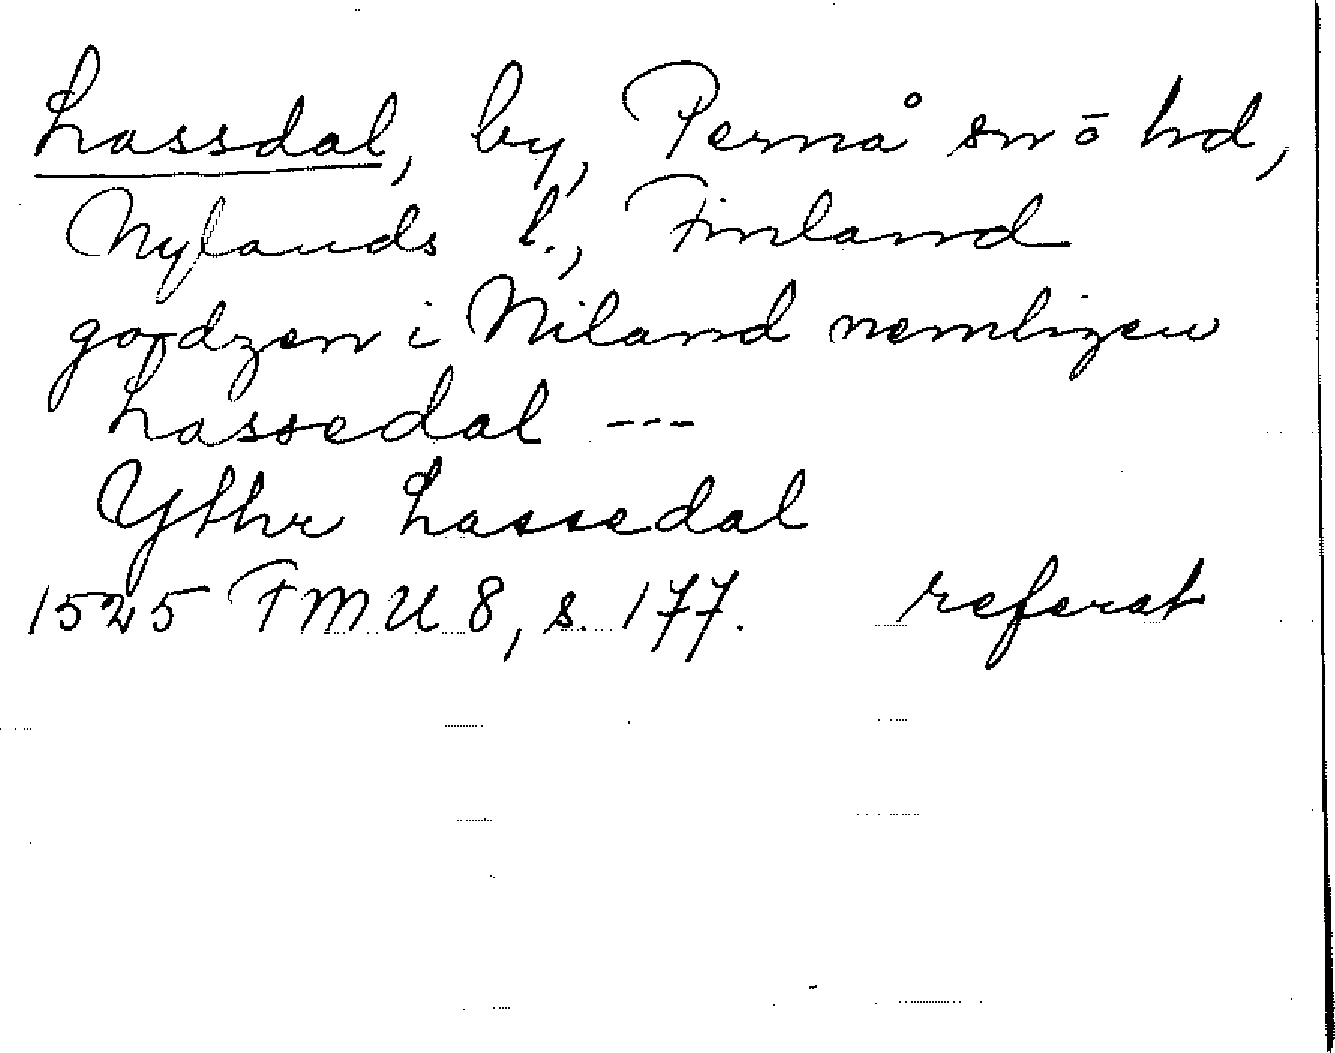 Lassdal, by, Pernå sn o hd,
Nylands l., Finland
godzen i Niland nemligen
Lassedal ---
Ythr Lassedal
1525 FMU 8, s. 177. referat